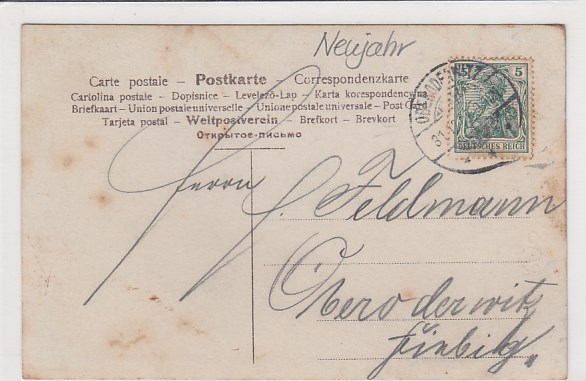 Neujahr
Carte postale – Postkarte – Correspondenzkarte
Cartolina postale – Dopisnice – Levelező-Lap – Karta korespondencyjna
Briefkaart – Union postale universelle – Unione postale universale – Post C
Tarjeta postal – Weltpostverein – Brefkort – Brevkort
Открытое-письмо
5
DEUTSCHES REICH
Herrn
F. Feldmann
Oberoderwitz